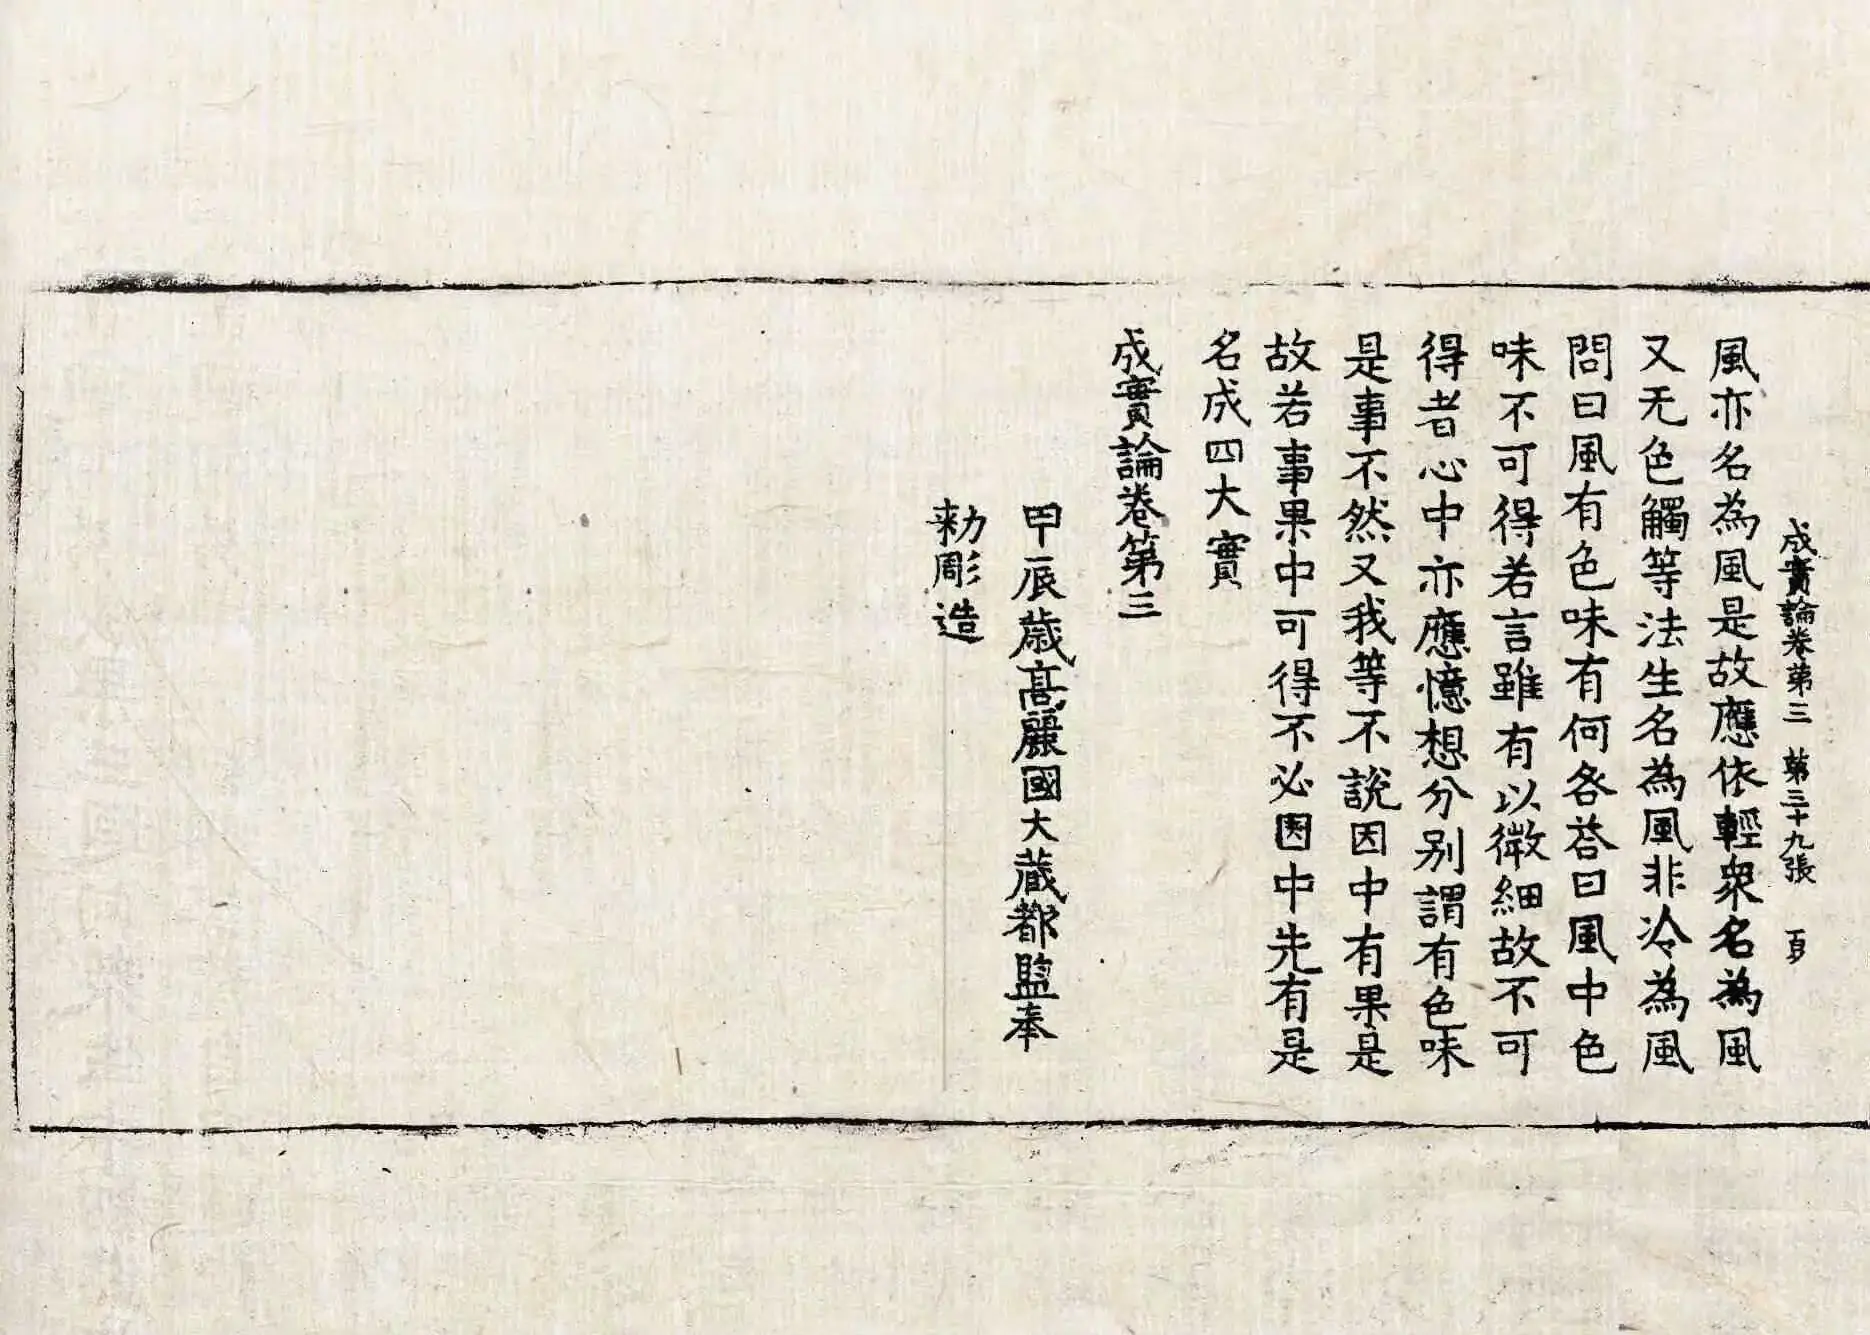 成實論卷第三 第三十九張 頁
風亦名為風是故應依輕衆名為風
又无色觸等法生名為風非冷為風
問曰風有色味有何咎荅曰風中色
味不可得若言雖有以微細故不可
得者心中亦應憶想分别謂有色味
是事不然又我等不說因中有果是
故若事果中可得不必因中先有是
名成四大實
成實論卷第三
甲辰歲髙麗國大藏都監奉
勑彫造